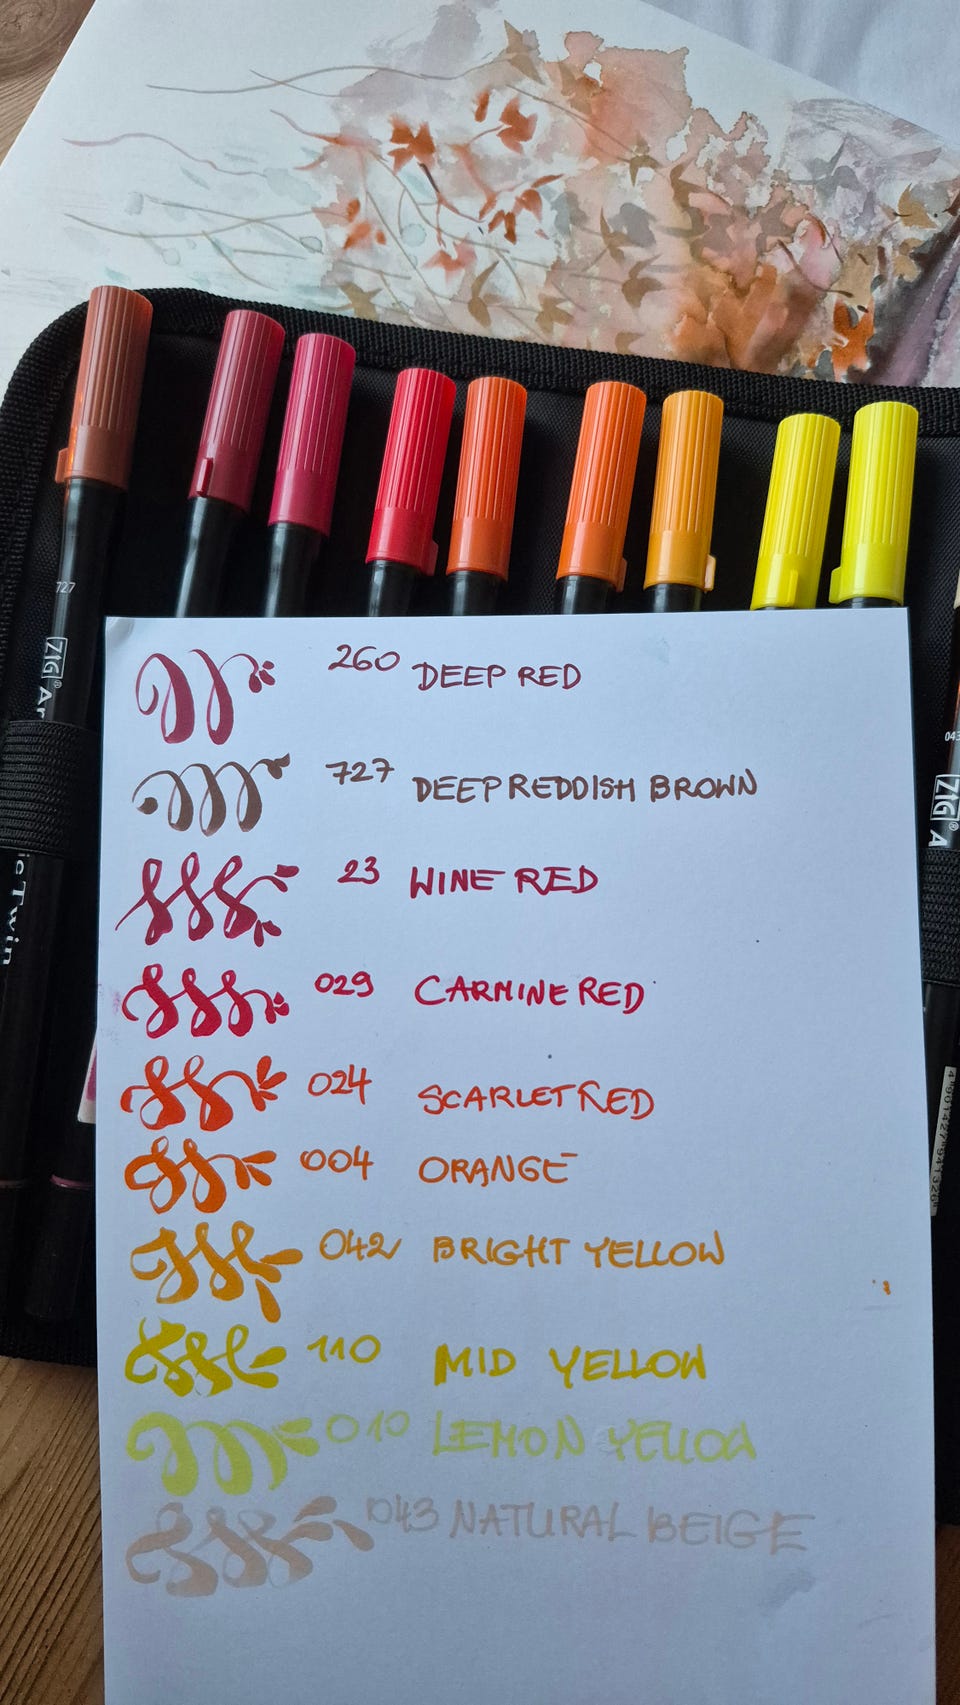 727
ZIG® Ar
ic Twin
260 DEEP RED
727 DEEP REDDISH BROWN
23 WINE RED
029 CARMINE RED
024 SCARLET RED
004 ORANGE
042 BRIGHT YELLOW
110 MID YELLOW
010 LEMON YELLOW
043 NATURAL BEIGE
043
ZIG® A